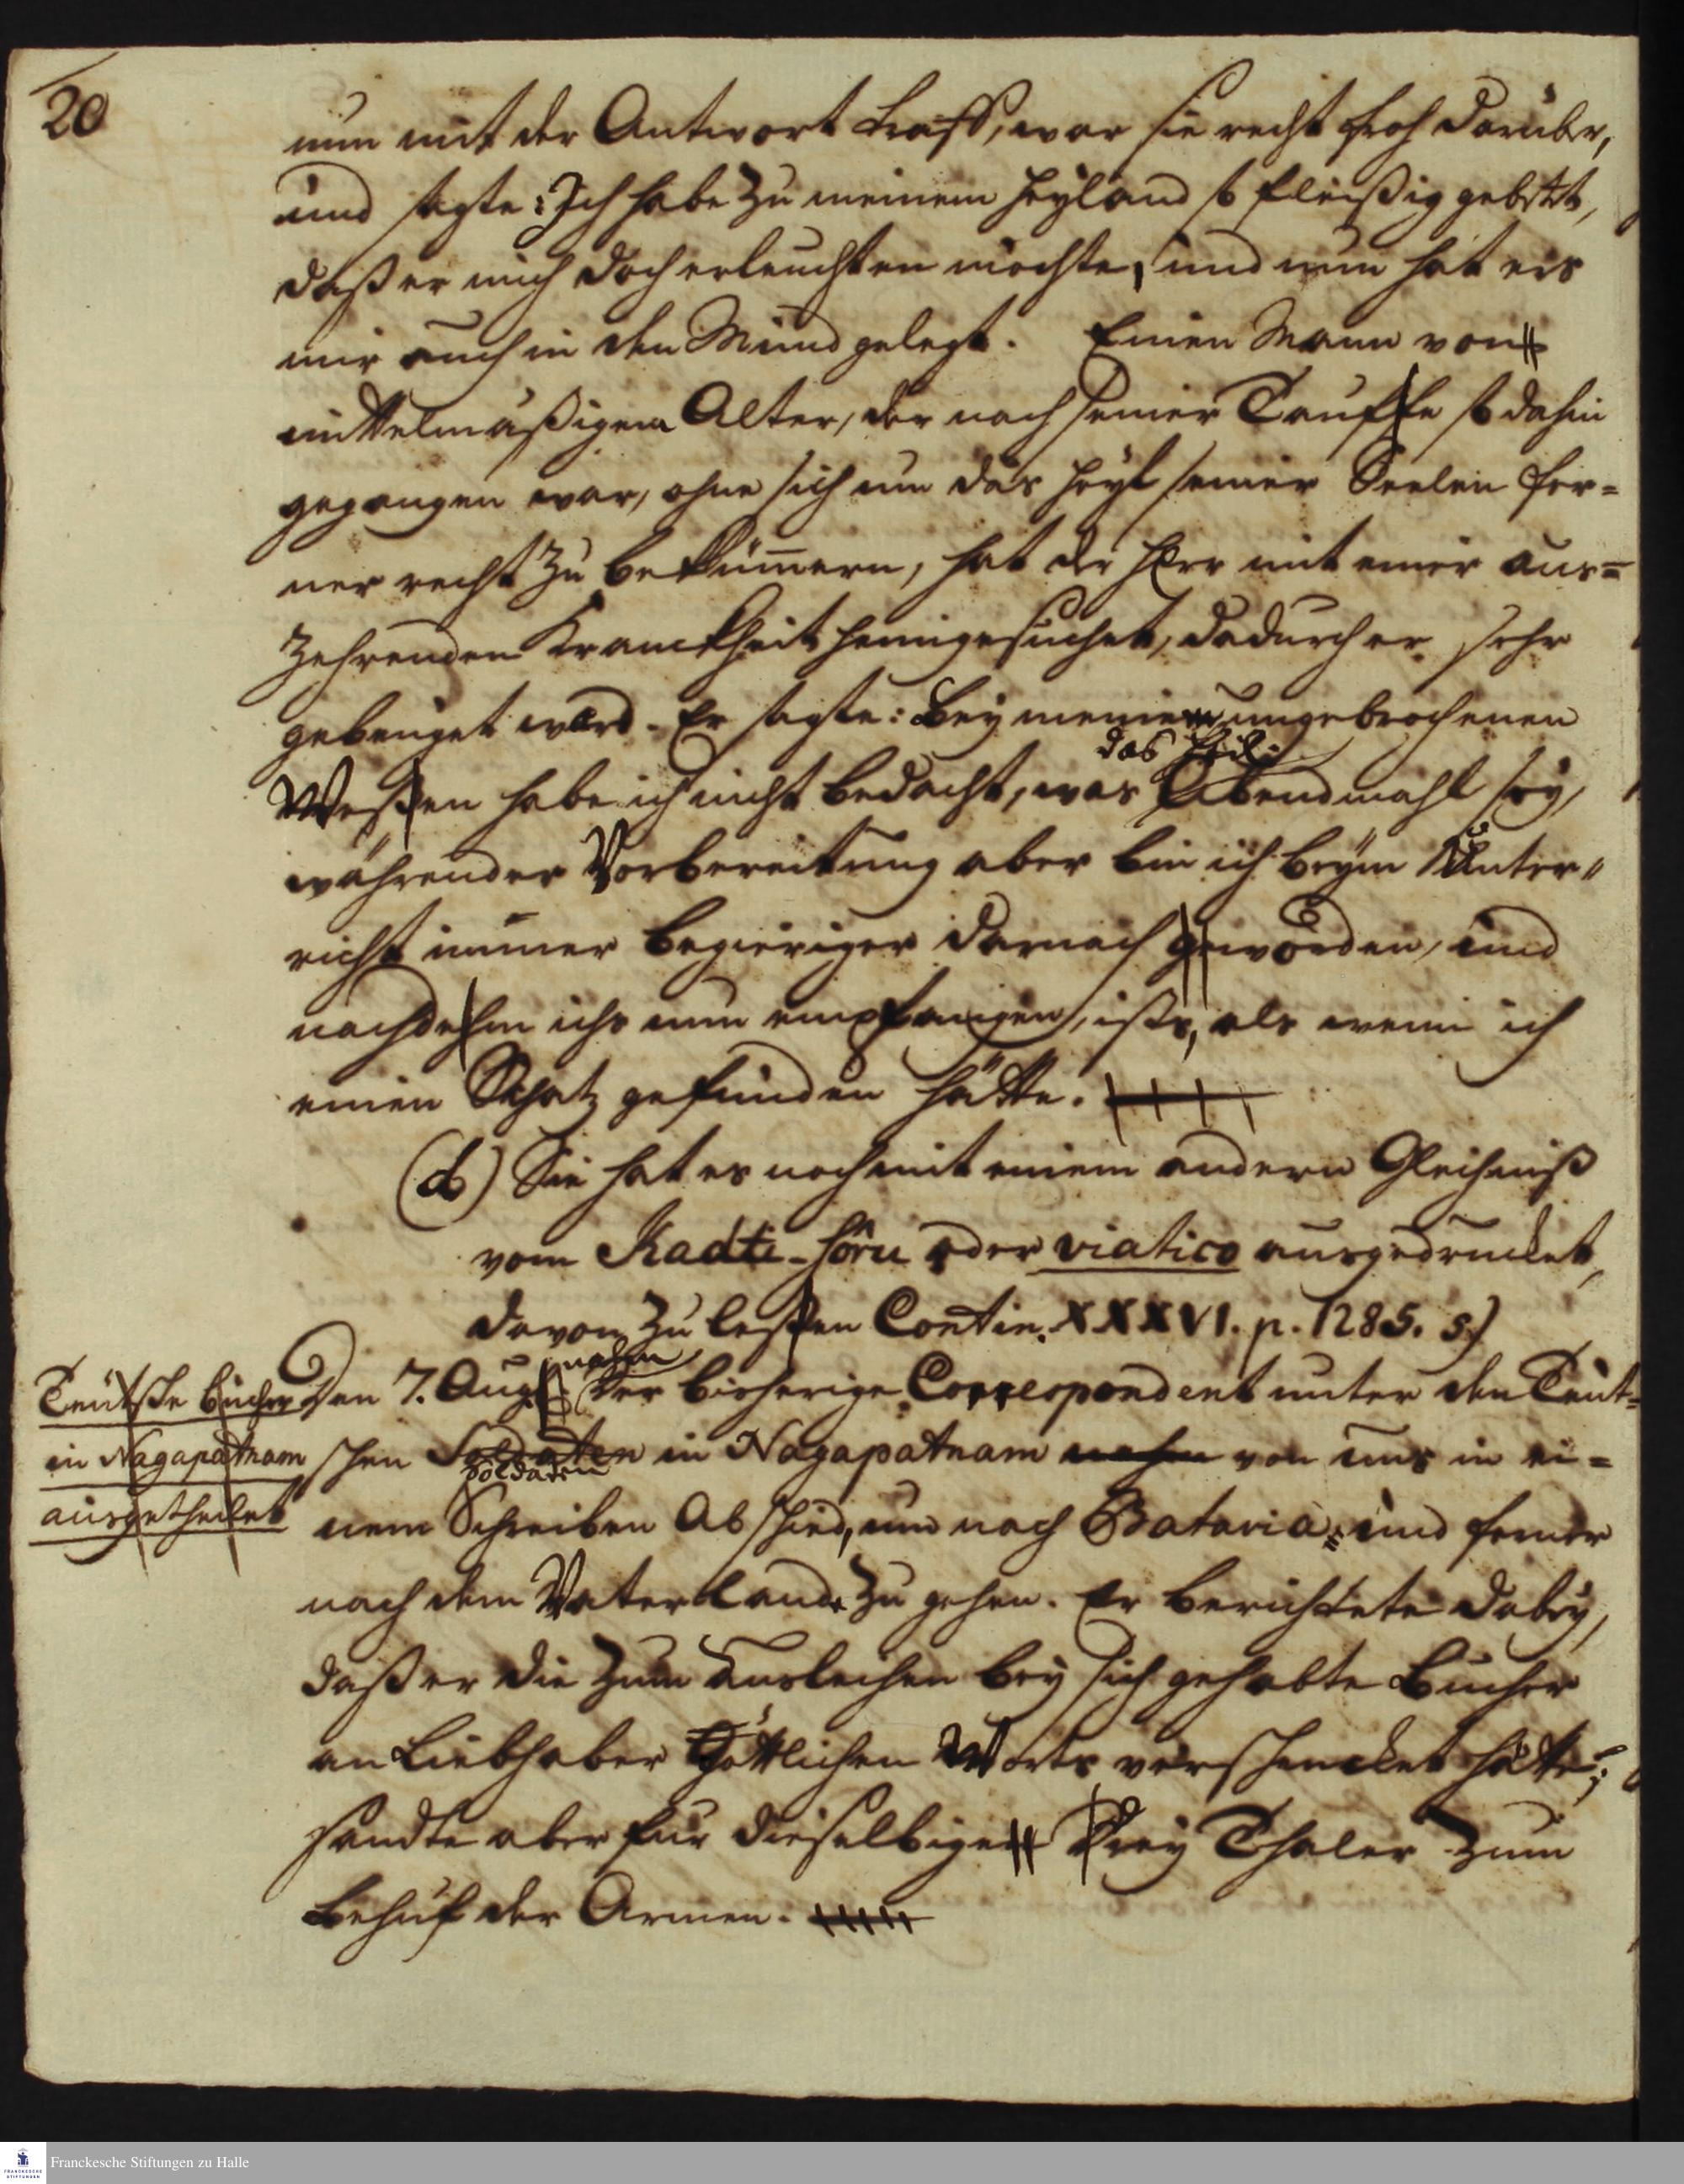 20
nun mit der Antwort traff, war sie recht froh darüber,
und sagte: Ich habe zu meinem Heyland so fleißig gebetet,
daß er mich doch erleuchten möchte, und nun hat ers
mir auch in den Mund gelegt. Einen Mann von
mittelmäßigem Alter, der nach seiner Tauffe so dahin
gegangen war, ohne sich um das Heyl seiner Seelen fer=
ner recht zu bekümmern, hat der Herr mit einer aus=
zehrenden Kranckheit heimgesuchet, dadurch er sehr
gebeuget ward. Er sagte: Bey meinem ungebrochenen
das Heil.
Wesen habe ich nicht bedacht, was Abendmahl sey,
währender Vorbereitung aber bin ich beym Unter=
richt immer begieriger darnach geworden, und
nachdem ichs nun empfangen, ists, als wenn ich
einen Schatz gefunden hätte.
(b) Sie hat es noch mit einem andern Gleichniß
vom Kadti-soru oder viatico ausgedrucket,
davon zu lesen Contin. XXXVI. p. 1285. s.)
Teutsche Bücher
in Nagapatnam
ausgetheilet
nahm
Den 7. Aug. der bisherige Correspondent unter den Teut=
schen Soldaten in Nagapatnam nahm von uns in ei=
Soldaten
nem Schreiben Abschied, um nach Batavia, und ferner
nach dem Vaterlande zu gehen. Er berichtete dabey,
daß er die zum Ausleihen bey sich gehabte Bücher
an Liebhaber Göttlichen Worts verschencket hätte;
sandte aber für dieselbige Drey Thaler zum
Behuf der Armen.
Franckesche Stiftungen zu Halle
FRANCKESCHE
STIFTUNGEN